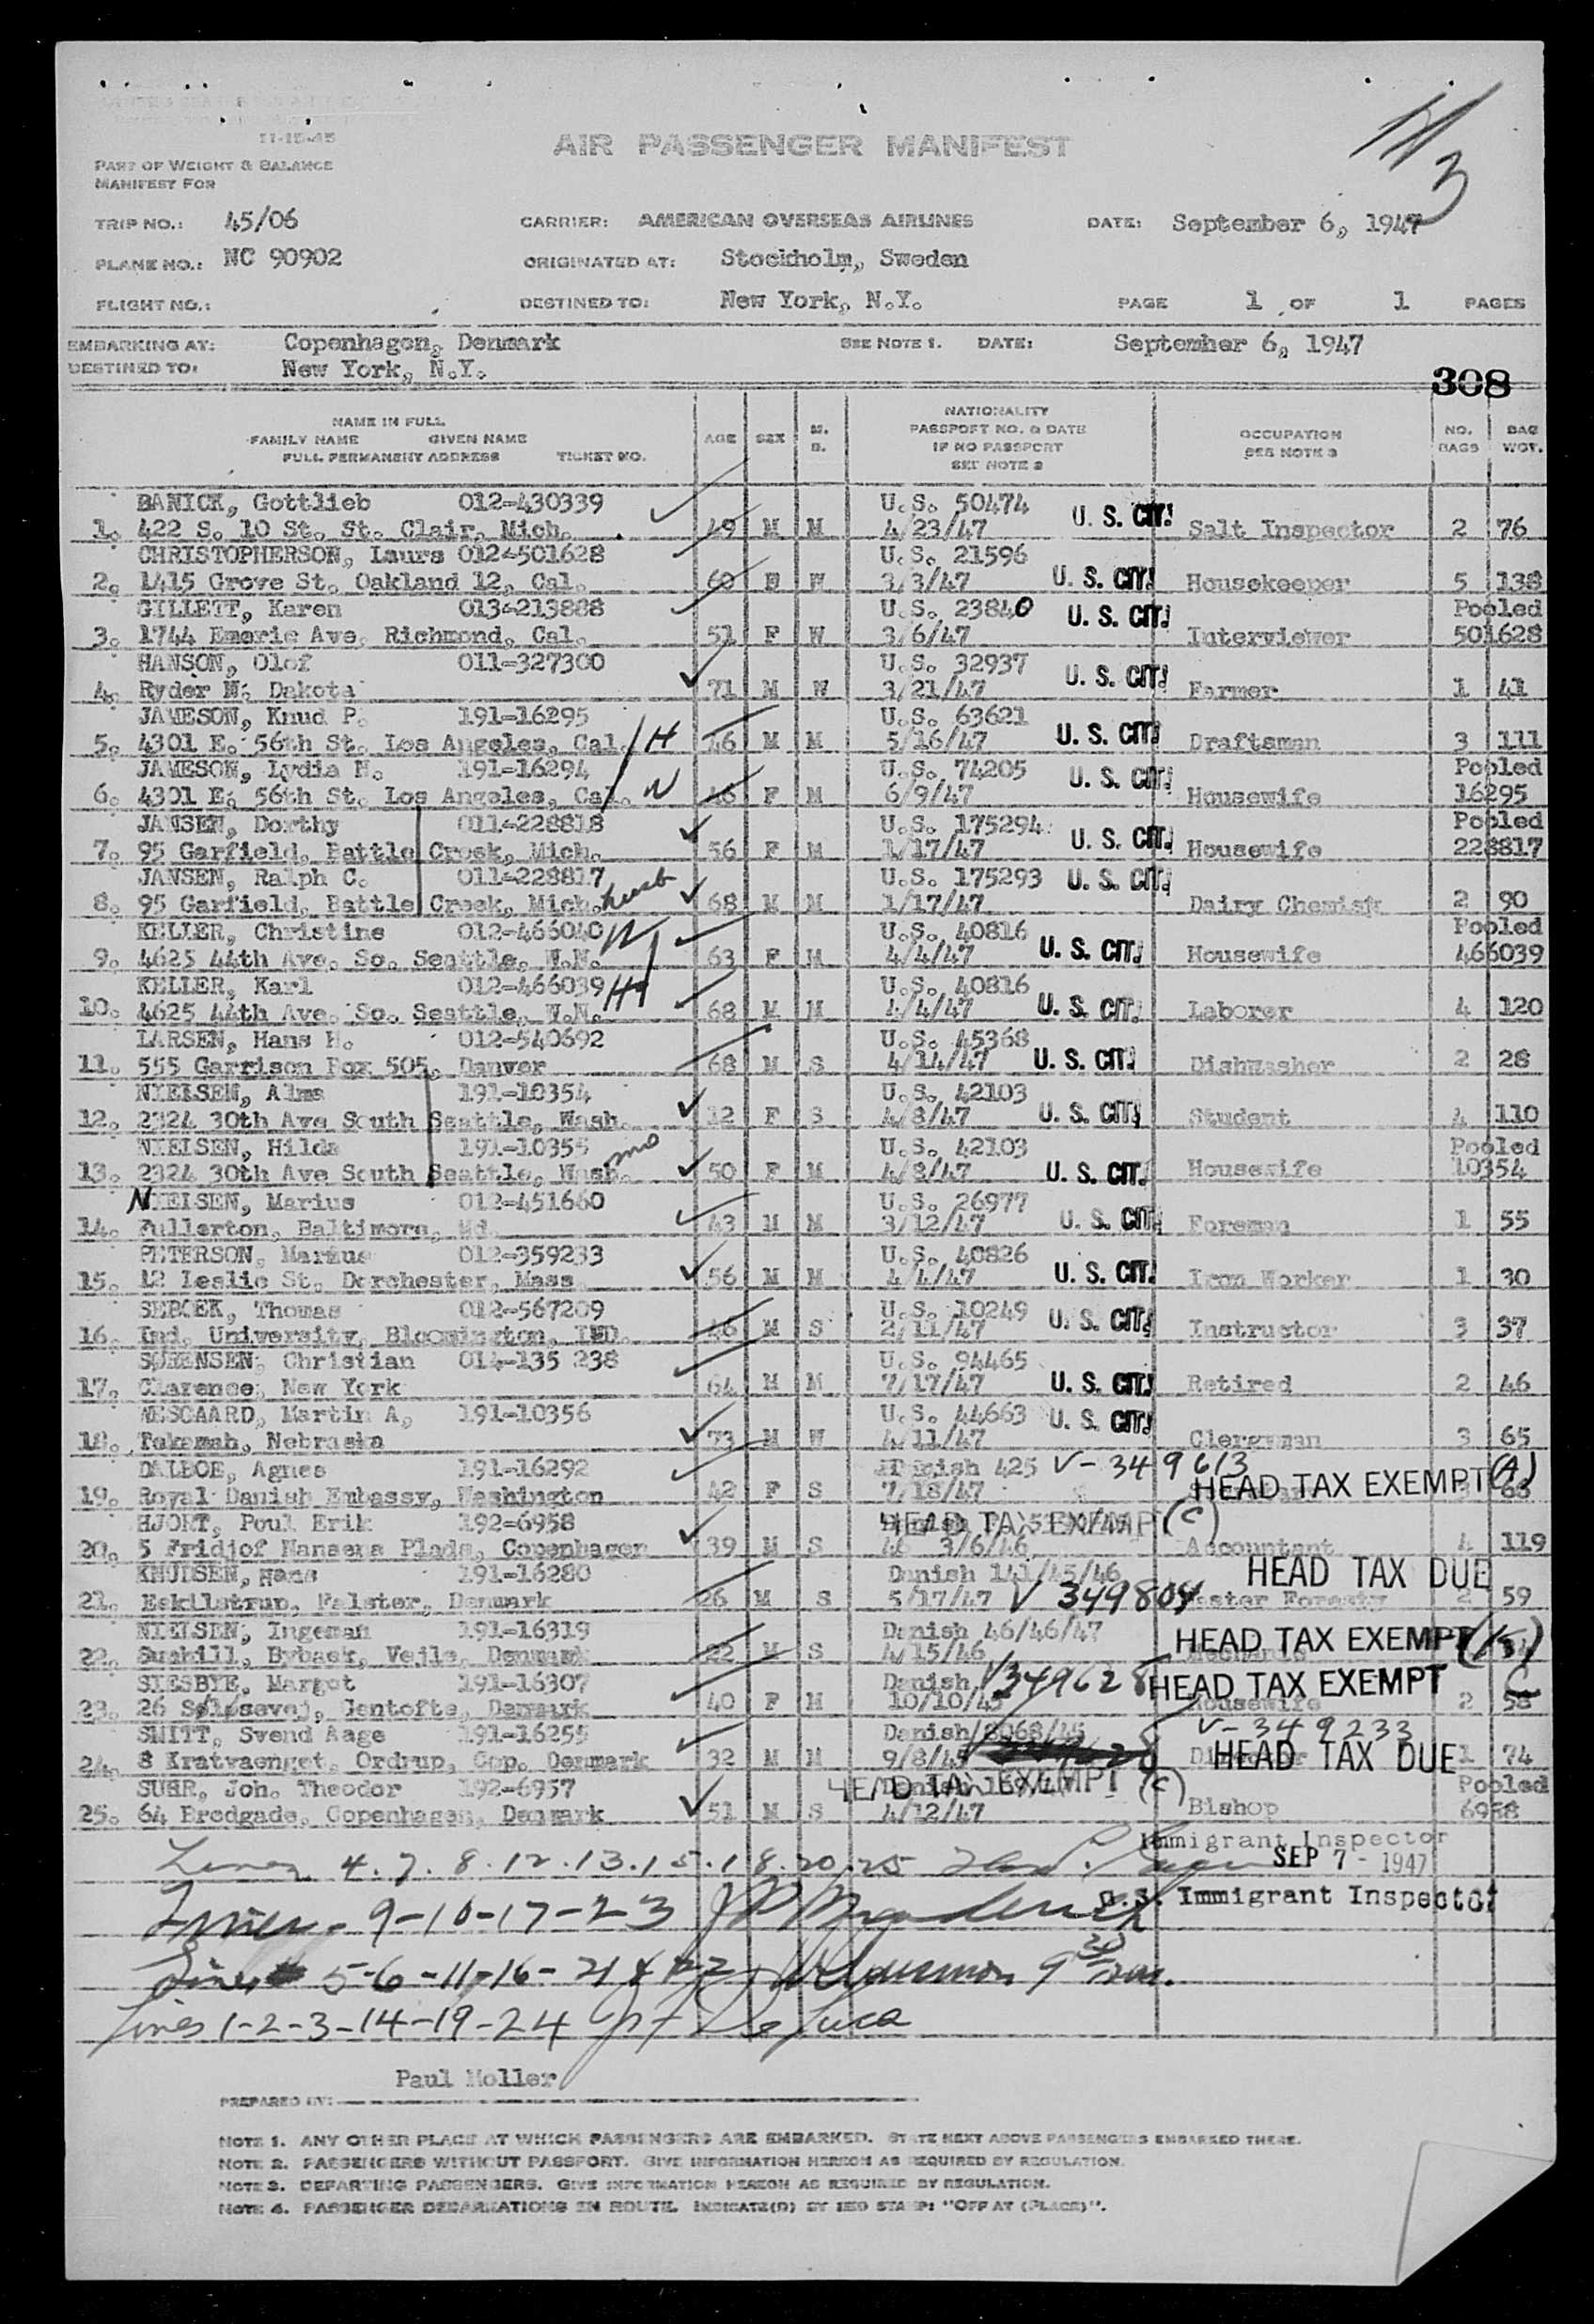 M
3
11-15-45
AIR PASSENGER MANIFEST
PART OF WEIGHT & BALANCE
MANIFEST FOR
TRIP NO.: 45/06 CARRIER: AMERICAN OVERSEAS AIRLINES DATE: September 6, 1947
PLANE NO.: NC 90902 ORIGINATED AT: Stockholm, Sweden
FLIGHT NO.: DESTINED TO: New York, N.Y. PAGE 1 OF 1 PAGES
EMBARKING AT: Copenhagen, Denmark SEE NOTE 1. DATE: September 6, 1947
DESTINED TO: New York, N.Y.
308
NAME IN FULL
FAMILY NAME GIVEN NAME
FULL PERMANENT ADDRESS TICKET NO.
AGE SEX M. S.
NATIONALITY
PASSPORT NO. & DATE
IF NO PASSPORT
SEE NOTE 2
OCCUPATION
SEE NOTE 3
NO. BAGS
BAG WGT.
BANICK, Gottlieb 012-430339 U.S. 50474 U. S. CIT.
1. 422 S. 10 St. St. Clair, Mich. 49 M M 4/23/47 Salt Inspector 2 76
CHRISTOPHERSON, Laura 012-501628 U.S. 21596
2. 1415 Grove St. Oakland 12, Cal. 60 F W 3/3/47 U. S. CIT. Housekeeper 5 138
GILLETT, Karen 013-213888 U.S. 23840 U. S. CIT. Pooled
3. 1744 Emeric Ave. Richmond, Cal. 51 F W 3/6/47 Interviewer 501628
HANSON, Olof 011-327300 U.S. 32937 U. S. CIT.
4. Ryder N. Dakota 71 M W 3/21/47 Farmer 1 41
JAMESON, Knud P. 191-16295 U.S. 63621
5. 4301 E. 56th St. Los Angeles, Cal. H 46 M M 5/16/47 U. S. CIT. Draftsman 3 111
JAMESON, Lydia N. 191-16294 U.S. 74205 U. S. CIT. Pooled
6. 4301 E. 56th St. Los Angeles, Cal. W 46 F M 6/9/47 Housewife 16295
JANSEN, Dorthy 011-228818 U.S. 175294 U. S. CIT. Pooled
7. 95 Garfield, Battle Creek, Mich. 56 F M 1/17/47 Housewife 228817
JANSEN, Ralph C. 011-228817 U.S. 175293 U. S. CIT.
8. 95 Garfield, Battle Creek, Mich. husb 68 M M 1/17/47 Dairy Chemist 2 90
KELLER, Christine 012-466040 W U.S. 40816 Pooled
9. 4625 44th Ave. So. Seattle, W.N. 63 F M 4/4/47 U. S. CIT. Housewife 466039
KELLER, Karl 012-466039 H U.S. 40816
10. 4625 44th Ave. So. Seattle, W.N. 68 M M 4/4/47 U. S. CIT. Laborer 4 120
LARSEN, Hans H. 012-540692 U.S. 45368
11. 555 Garrison Box 505, Denver 68 M S 4/14/47 U. S. CIT. Dishwasher 2 28
NIELSEN, Alma 191-10354 U.S. 42103
12. 2324 30th Ave South Seattle, Wash. 12 F S 4/8/47 U. S. CIT. Student 4 110
NIELSEN, Hilda 191-10355 mo U.S. 42103 Pooled
13. 2324 30th Ave South Seattle, Wash. 50 F M 4/8/47 U. S. CIT. Housewife 10354
NIELSEN, Marius 012-451660 U.S. 26977
14. Fullerton, Baltimore, Md. 43 M M 3/12/47 U. S. CIT. Foreman 1 55
PETERSON, Marius 012-359233 U.S. 40826
15. 12 Leslie St. Dorchester, Mass. 56 M M 4/4/47 U. S. CIT. Iron Worker 1 30
SEBOEK, Thomas 012-567209 U.S. 10249
16. Ind. University, Bloomington, IND. 26 M S 2/11/47 U. S. CIT. Instructor 3 37
SØRENSEN, Christian 014-135 238 U.S. 94465
17. Clarence, New York 64 M M 7/17/47 U. S. CIT. Retired 2 46
WESGAARD, Martin A. 191-10356 U.S. 44663 U. S. CIT.
18. Tekamah, Nebraska 73 M W 4/11/47 Clergyman 3 65
DALBOE, Agnes 191-16292 Danish 425 V-349613
19. Royal Danish Embassy, Washington 42 F S 7/18/47 HEAD TAX EXEMPT (A) 63
HJORT, Poul Erik 192-6958 HEAD TAX EXEMPT (C)
20. 5 Fridjof Nansens Plads, Copenhagen 39 M S 3/6/46 Accountant 4 119
KNUDSEN, Hans 191-16280 Danish 141/45/46 HEAD TAX DUE
21. Eskilstrup, Falster, Denmark 26 M S 5/17/47 V 349804 Forestry 2 59
NIELSEN, Ingeman 191-16319 Danish 46/46/47 HEAD TAX EXEMPT
22. Bybaek, Vejle, Denmark 22 M S 4/15/46 Mechanic
SIESBYE, Margot 191-16307 Danish V349628 HEAD TAX EXEMPT C
23. 26 Søløsevej, Gentofte, Denmark 40 F M 10/10/45 Housewife 2 58
SMITT, Svend Aage 191-16255 Danish/8068/45 V-349233
24. 8 Kratvaenget, Ordrup, Cop. Denmark 32 M M 9/8/45 Director HEAD TAX DUE 1 74
SUHR, Joh. Theodor 192-6957 HEAD TAX EXEMPT (C) Pooled
25. 64 Bredgade, Copenhagen, Denmark 51 M S 4/12/47 Bishop 6958
Lines 4.7.8.12.13.15.18.20.25 Immigrant Inspector
SEP 7 - 1947
Lines 9-10-17-23 U.S. Immigrant Inspector
Lines 5-6-11-16-21 & 22
Lines 1-2-3-14-19-24 De Luca
Paul Moller
PREPARED BY:
NOTE 1. ANY OTHER PLACE AT WHICH PASSENGERS ARE EMBARKED. STATE NEXT ABOVE PASSENGERS EMBARKED THERE.
NOTE 2. PASSENGERS WITHOUT PASSPORT. GIVE INFORMATION HEREON AS REQUIRED BY REGULATION.
NOTE 3. DEPARTING PASSENGERS. GIVE INFORMATION HEREON AS REQUIRED BY REGULATION.
NOTE 4. PASSENGER DEBARKATIONS EN ROUTE. INDICATE(D) BY RED STAMP: "OFF AT (PLACE)".